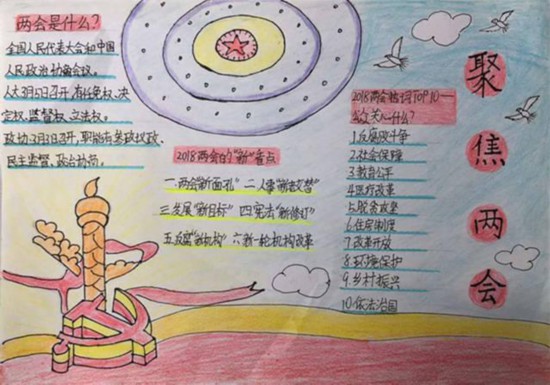 两会是什么?
全国人民代表大会和中国
人民政治协商会议。
人大3月5日召开,有任免权、决
定权、监督权、立法权。
政协3月3日召开,职能有参政议政、
民主监督、政治协商。
2018两会的"新"看点
一.两会"新面孔" 二.人事"新老交替"
三.发展"新目标" 四.宪法"新修订"
五.反腐"新机构" 六.新一轮机构改革
2018两会热词TOP10
公众关心什么?
1.反腐败斗争
2.社会保障
3.教育公平
4.医疗改革
5.脱贫攻坚
6.住房制度
7.改革开放
8.环境保护
9.乡村振兴
10.依法治国
聚焦两会